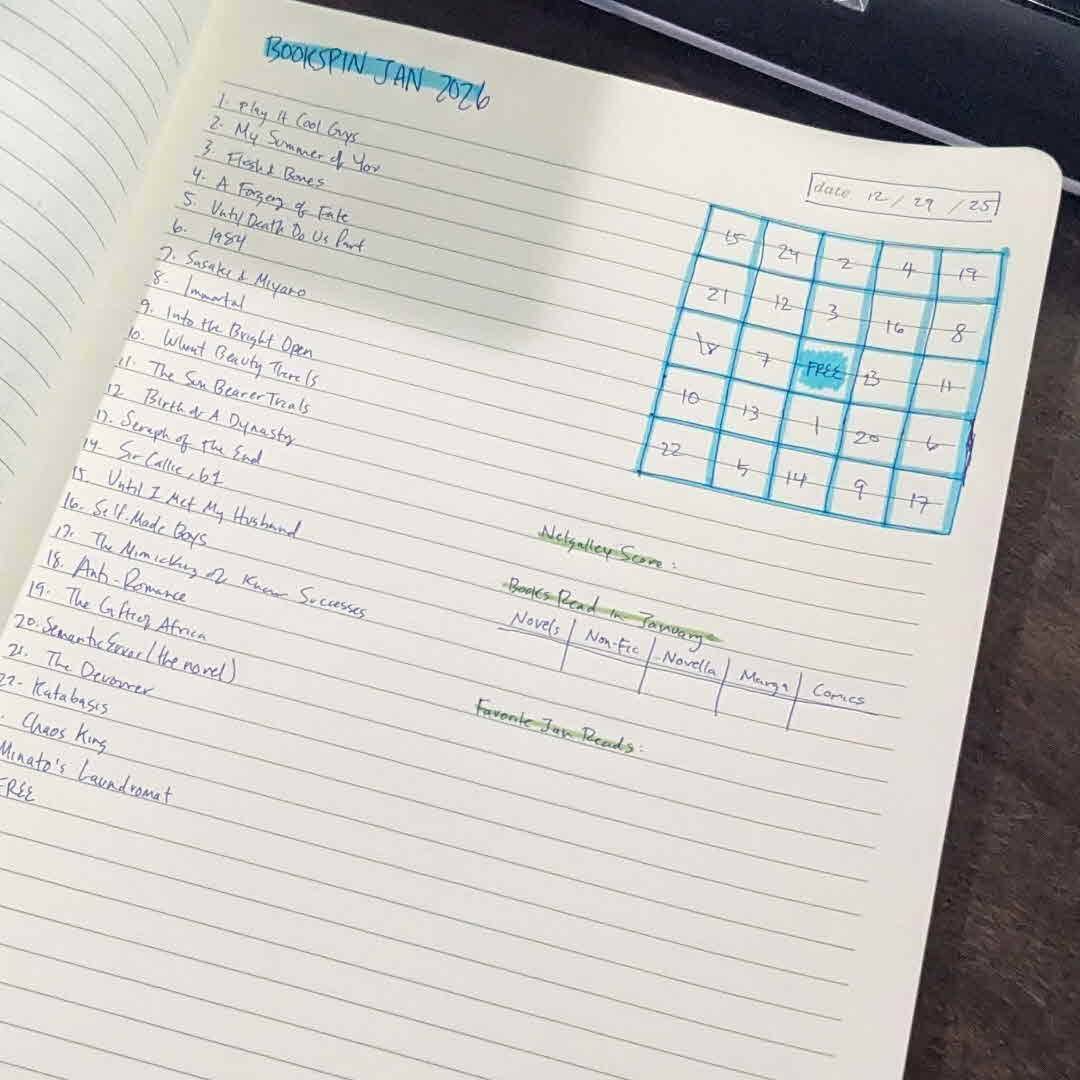 BOOKSPIN JAN 2026
1. Play It Cool Guys
2. My Summer of You
3. Flesh & Bones
4. A Forgery of Fate
5. Until Death Do Us Part
6. 1984
7. Sasaki & Miyano
8. Immortal
9. Into the Bright Open
10. What Beauty There Is
11. The Sun Bearer Trials
12. Birth of A Dynasty
13. Seraph of the End
14. Sir Callie, b1
15. Until I Met My Husband
16. Self-Made Boys
17. The Mimicking of Known Successes
18. Anti-Romance
19. The Gift of Africa
20. Semantic Error (the novel)
21. The Devourer
22. Katabasis
. Chaos King
Minato's Laundromat
FREE
date 12 / 29 / 25
15 24 2 4 19
21 12 3 16 8
18 7 FREE 23 11
10 13 1 20 6
22 5 14 9 17
Netgalley Score:
Books Read in January
Novels Non-Fic Novella Manga Comics
Favorite Jan Reads: